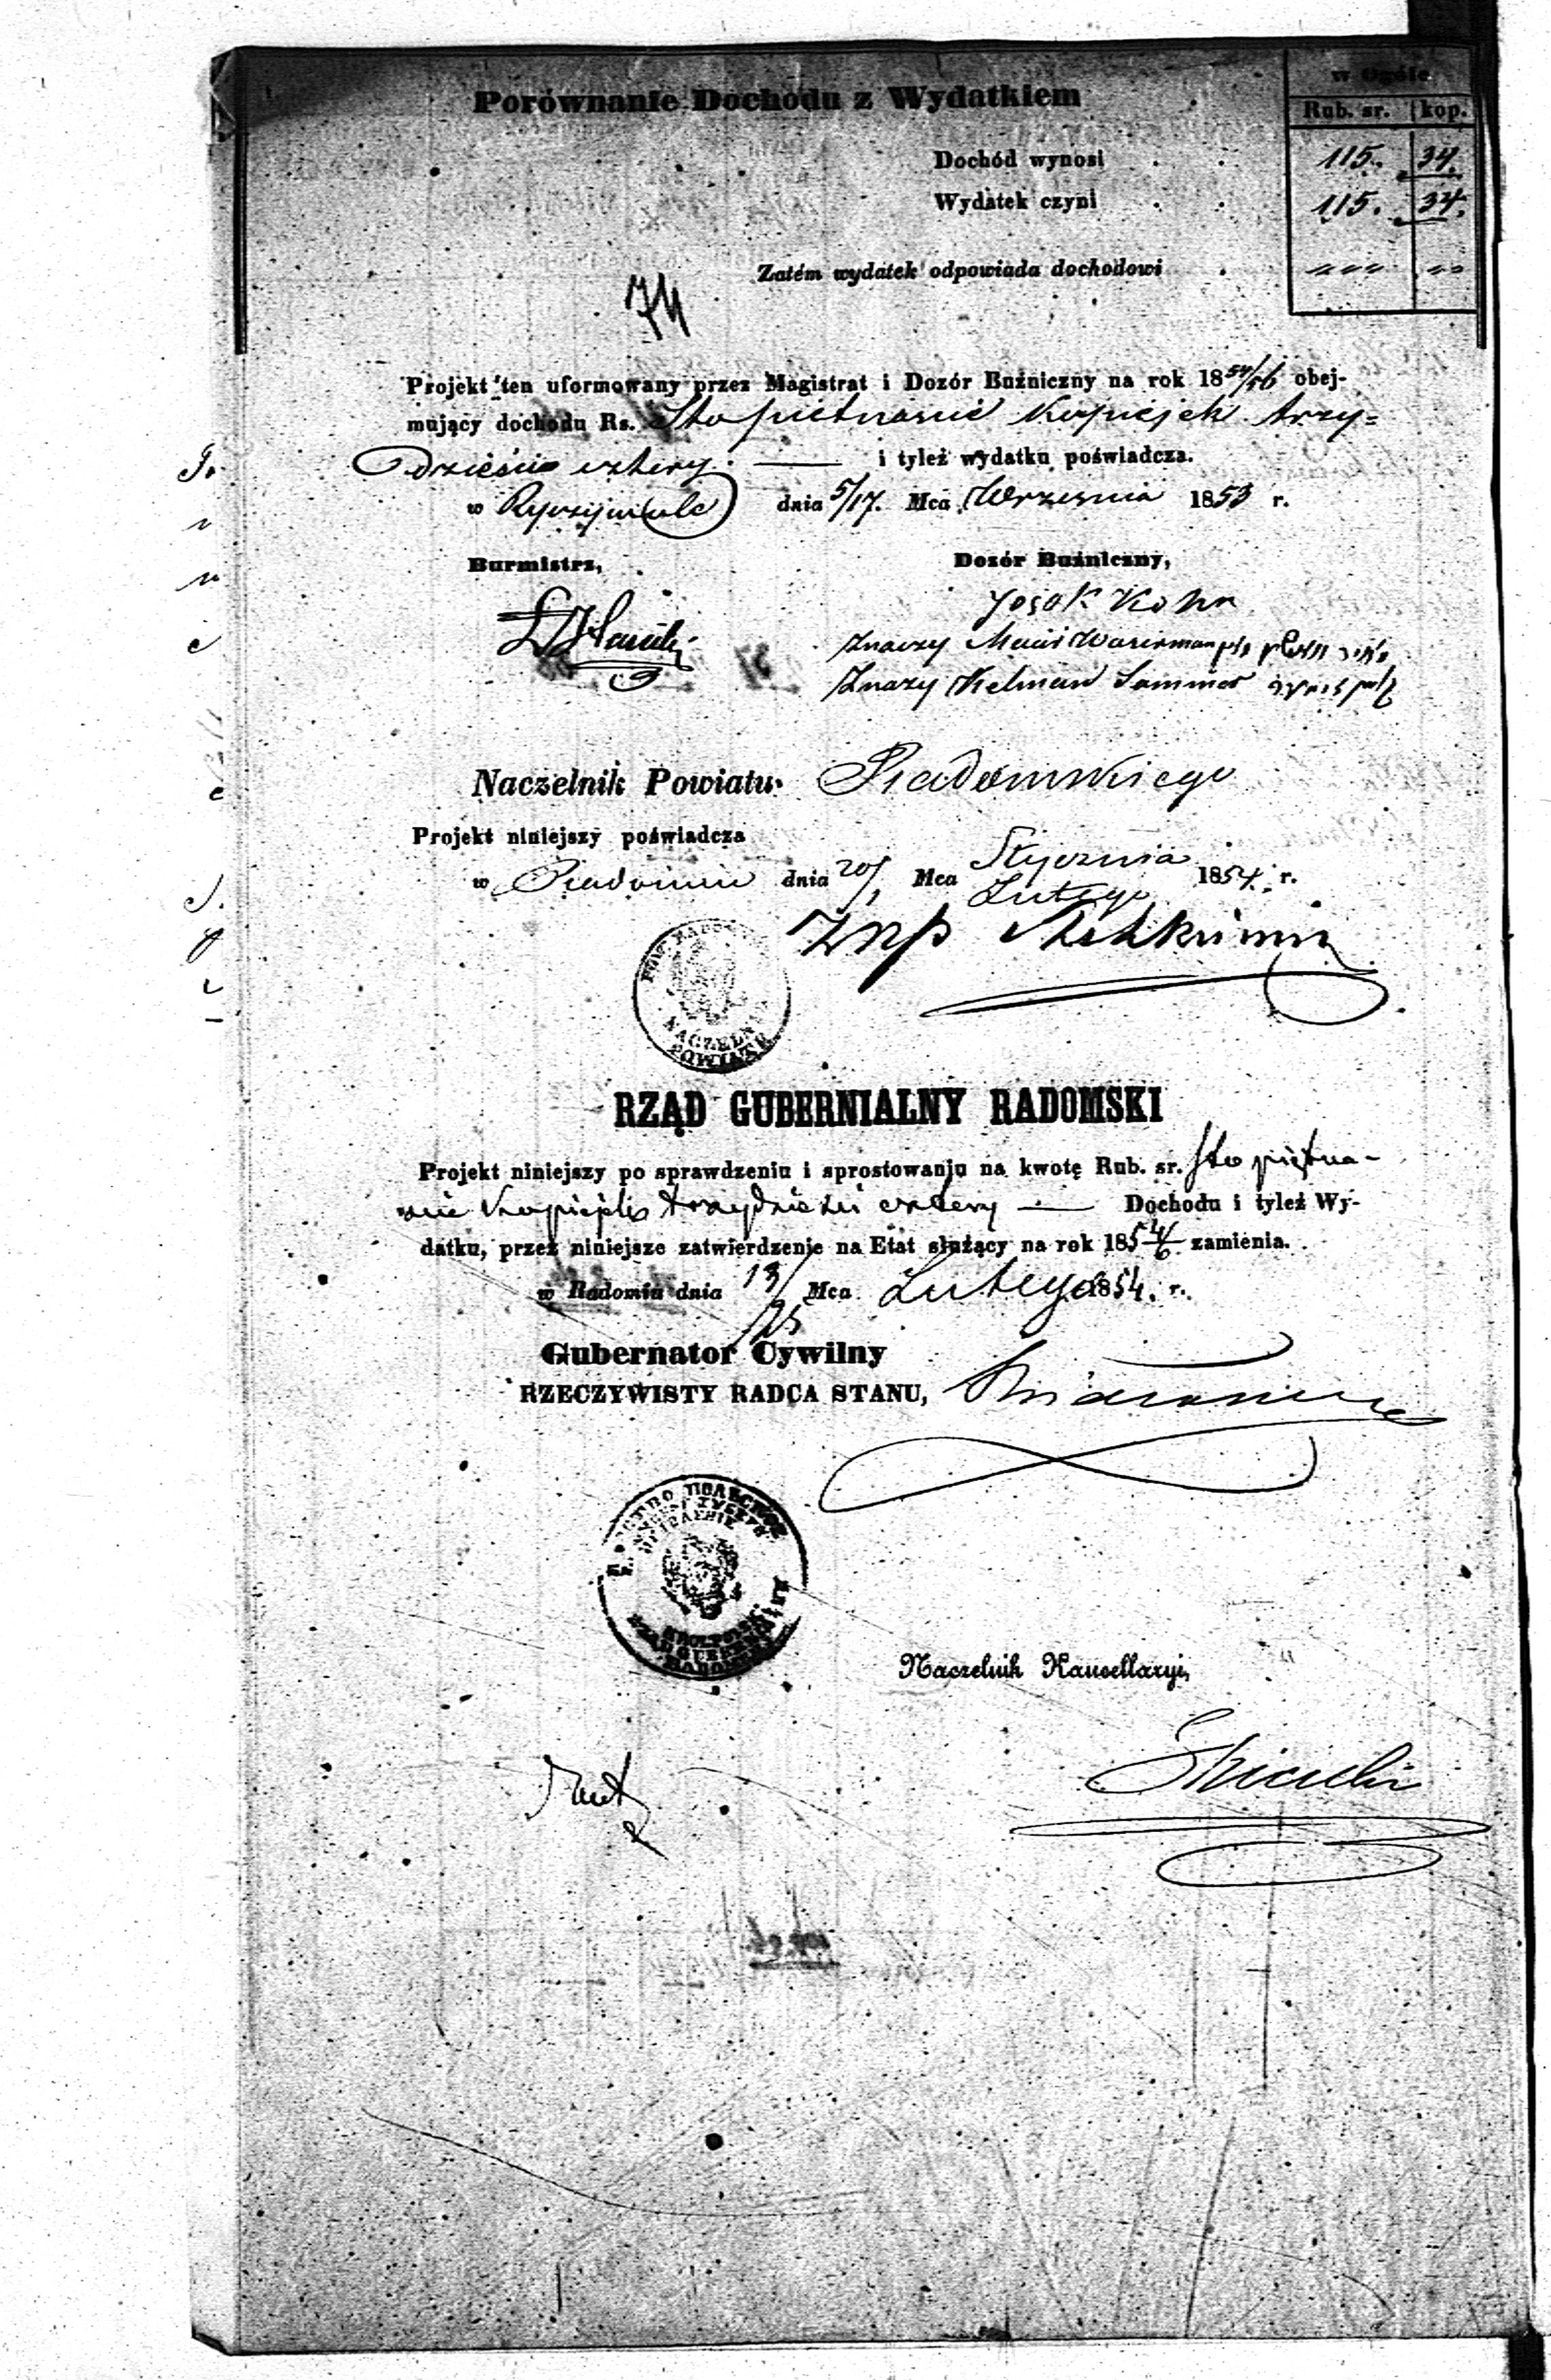 w Ogóle
Porównanie Dochodu z Wydatkiem
Rub. sr. kop.
Dochód wynosi . . 115. 34.
Wydatek czyni . . 115. 34.
Zatém wydatek odpowiada dochodowi .
74
Projekt ten uformowany przez Magistrat i Dozór Buźniczny na rok 1854/56 obej-
mujący dochodu Rs. Sto pietnascie Kopiejek trzy=
dzieści cztery. — i tyleż wydatku poświadcza.
w dnia 5/17. Mca Wrzesnia 1853 r.
Burmistrz,
Dozór Buźniczny,
Josek Kohn
Znaczy Waserman
Znaczy Kelman
Naczelnik Powiatu Radomskiego
Projekt niniejszy poświadcza
w Radomiu dnia 20/1 Mca Stycznia Lutego 1854. r.
NACZELNIK POWIATU
RZĄD GUBERNIALNY RADOMSKI
Projekt niniejszy po sprawdzeniu i sprostowanju na kwotę Rub. sr. Sto piętna-
scie Kopiejek trzydzieści cztery — Dochodu i tyleż Wy-
datku, przez niniejsze zatwierdzenie na Etat służący na rok 1854/6 zamienia.
w Radomiu dnia 13/25 Mca Lutego 1854. r.
Gubernator Cywilny
RZECZYWISTY RADCA STANU,
Naczelnik Kancellaryi,